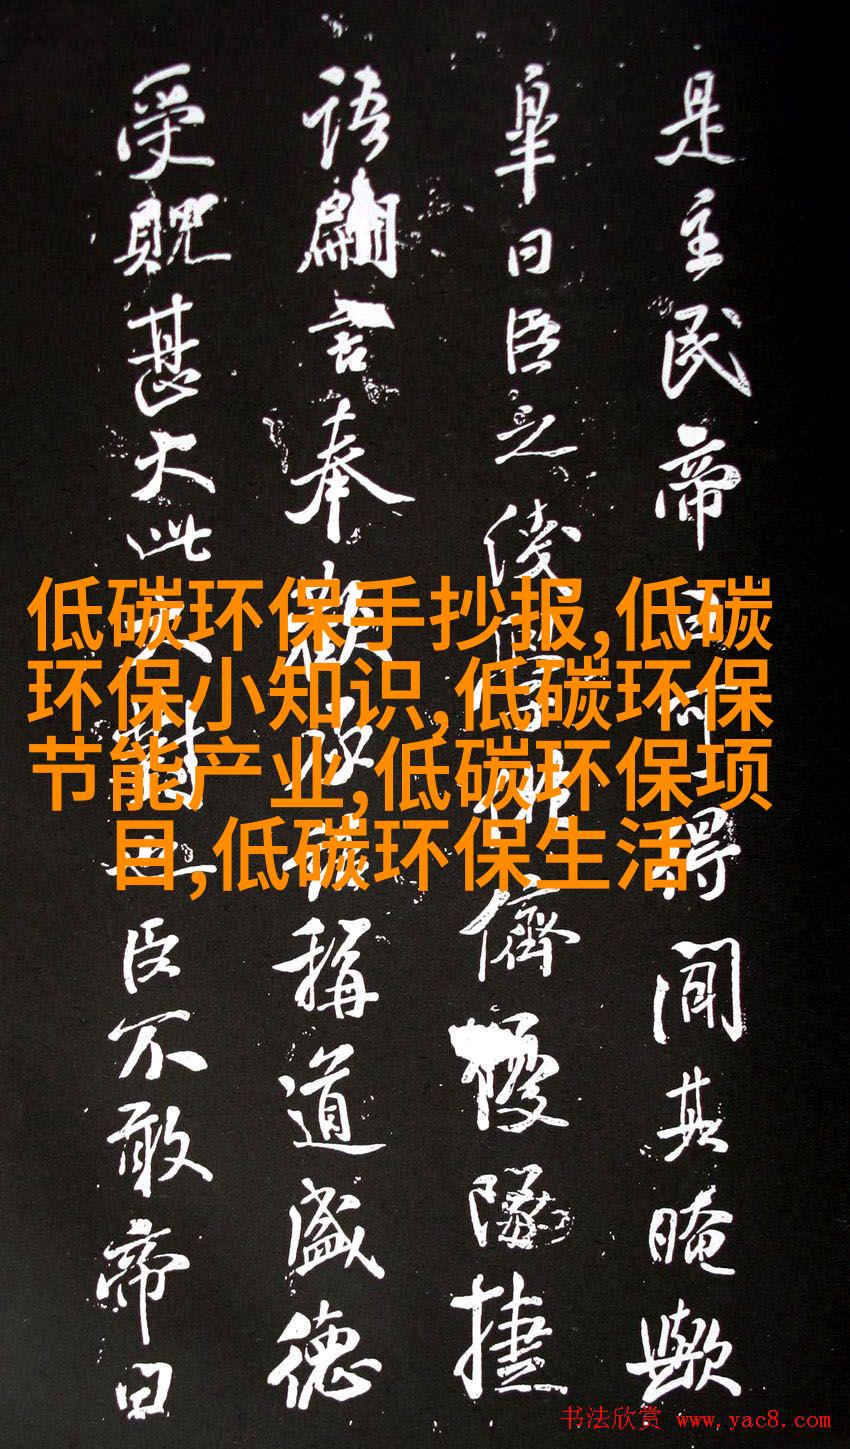 是主民帝得聞其晻歟
皐曰臣之儕優隊捷
語言奉稱道盛德
受貺甚大此臣不敢帝曰
低碳环保手抄报,低碳
环保小知识,低碳环保
节能产业,低碳环保项
目,低碳环保生活
书法欣赏 www.yac8.com